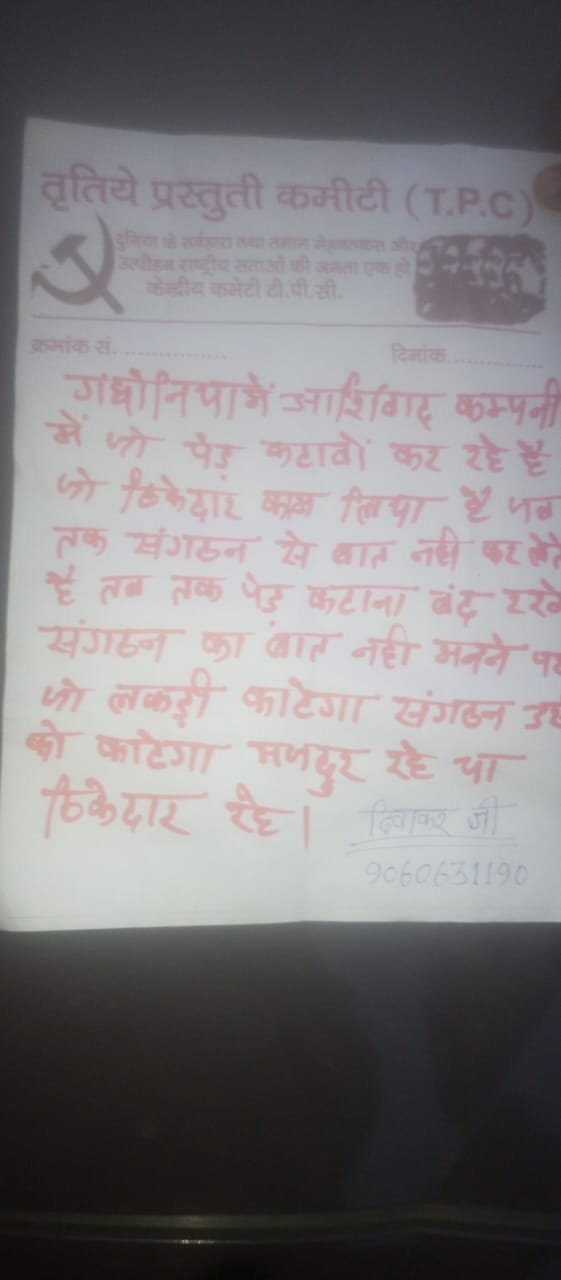 तृतिये प्रस्तुती कमीटी (T.P.C)
दुनिया के सर्वहारा तथा तमाम मेहनतकस और
उत्पीड़न राष्ट्रीय सताओं की जनता एक हो
केन्द्रीय कमेटी टी.पी.सी.
क्रमांक सं. ............... दिनांक..............
में आर्शिवाद कम्पनी
में जो पेड़ कटावो कर रहे है
जो ठिकेदार काम लिया है जब
तक संगठन से बात नही कर लेते
है तब तक पेड़ कटाना बंद रखे
संगठन का बात नही मनने पर
जो लकड़ी काटेगा संगठन उस
को काटेगा मजदुर रहे या
ठिकेदार रहे।
दिवाकर जी
9060631190